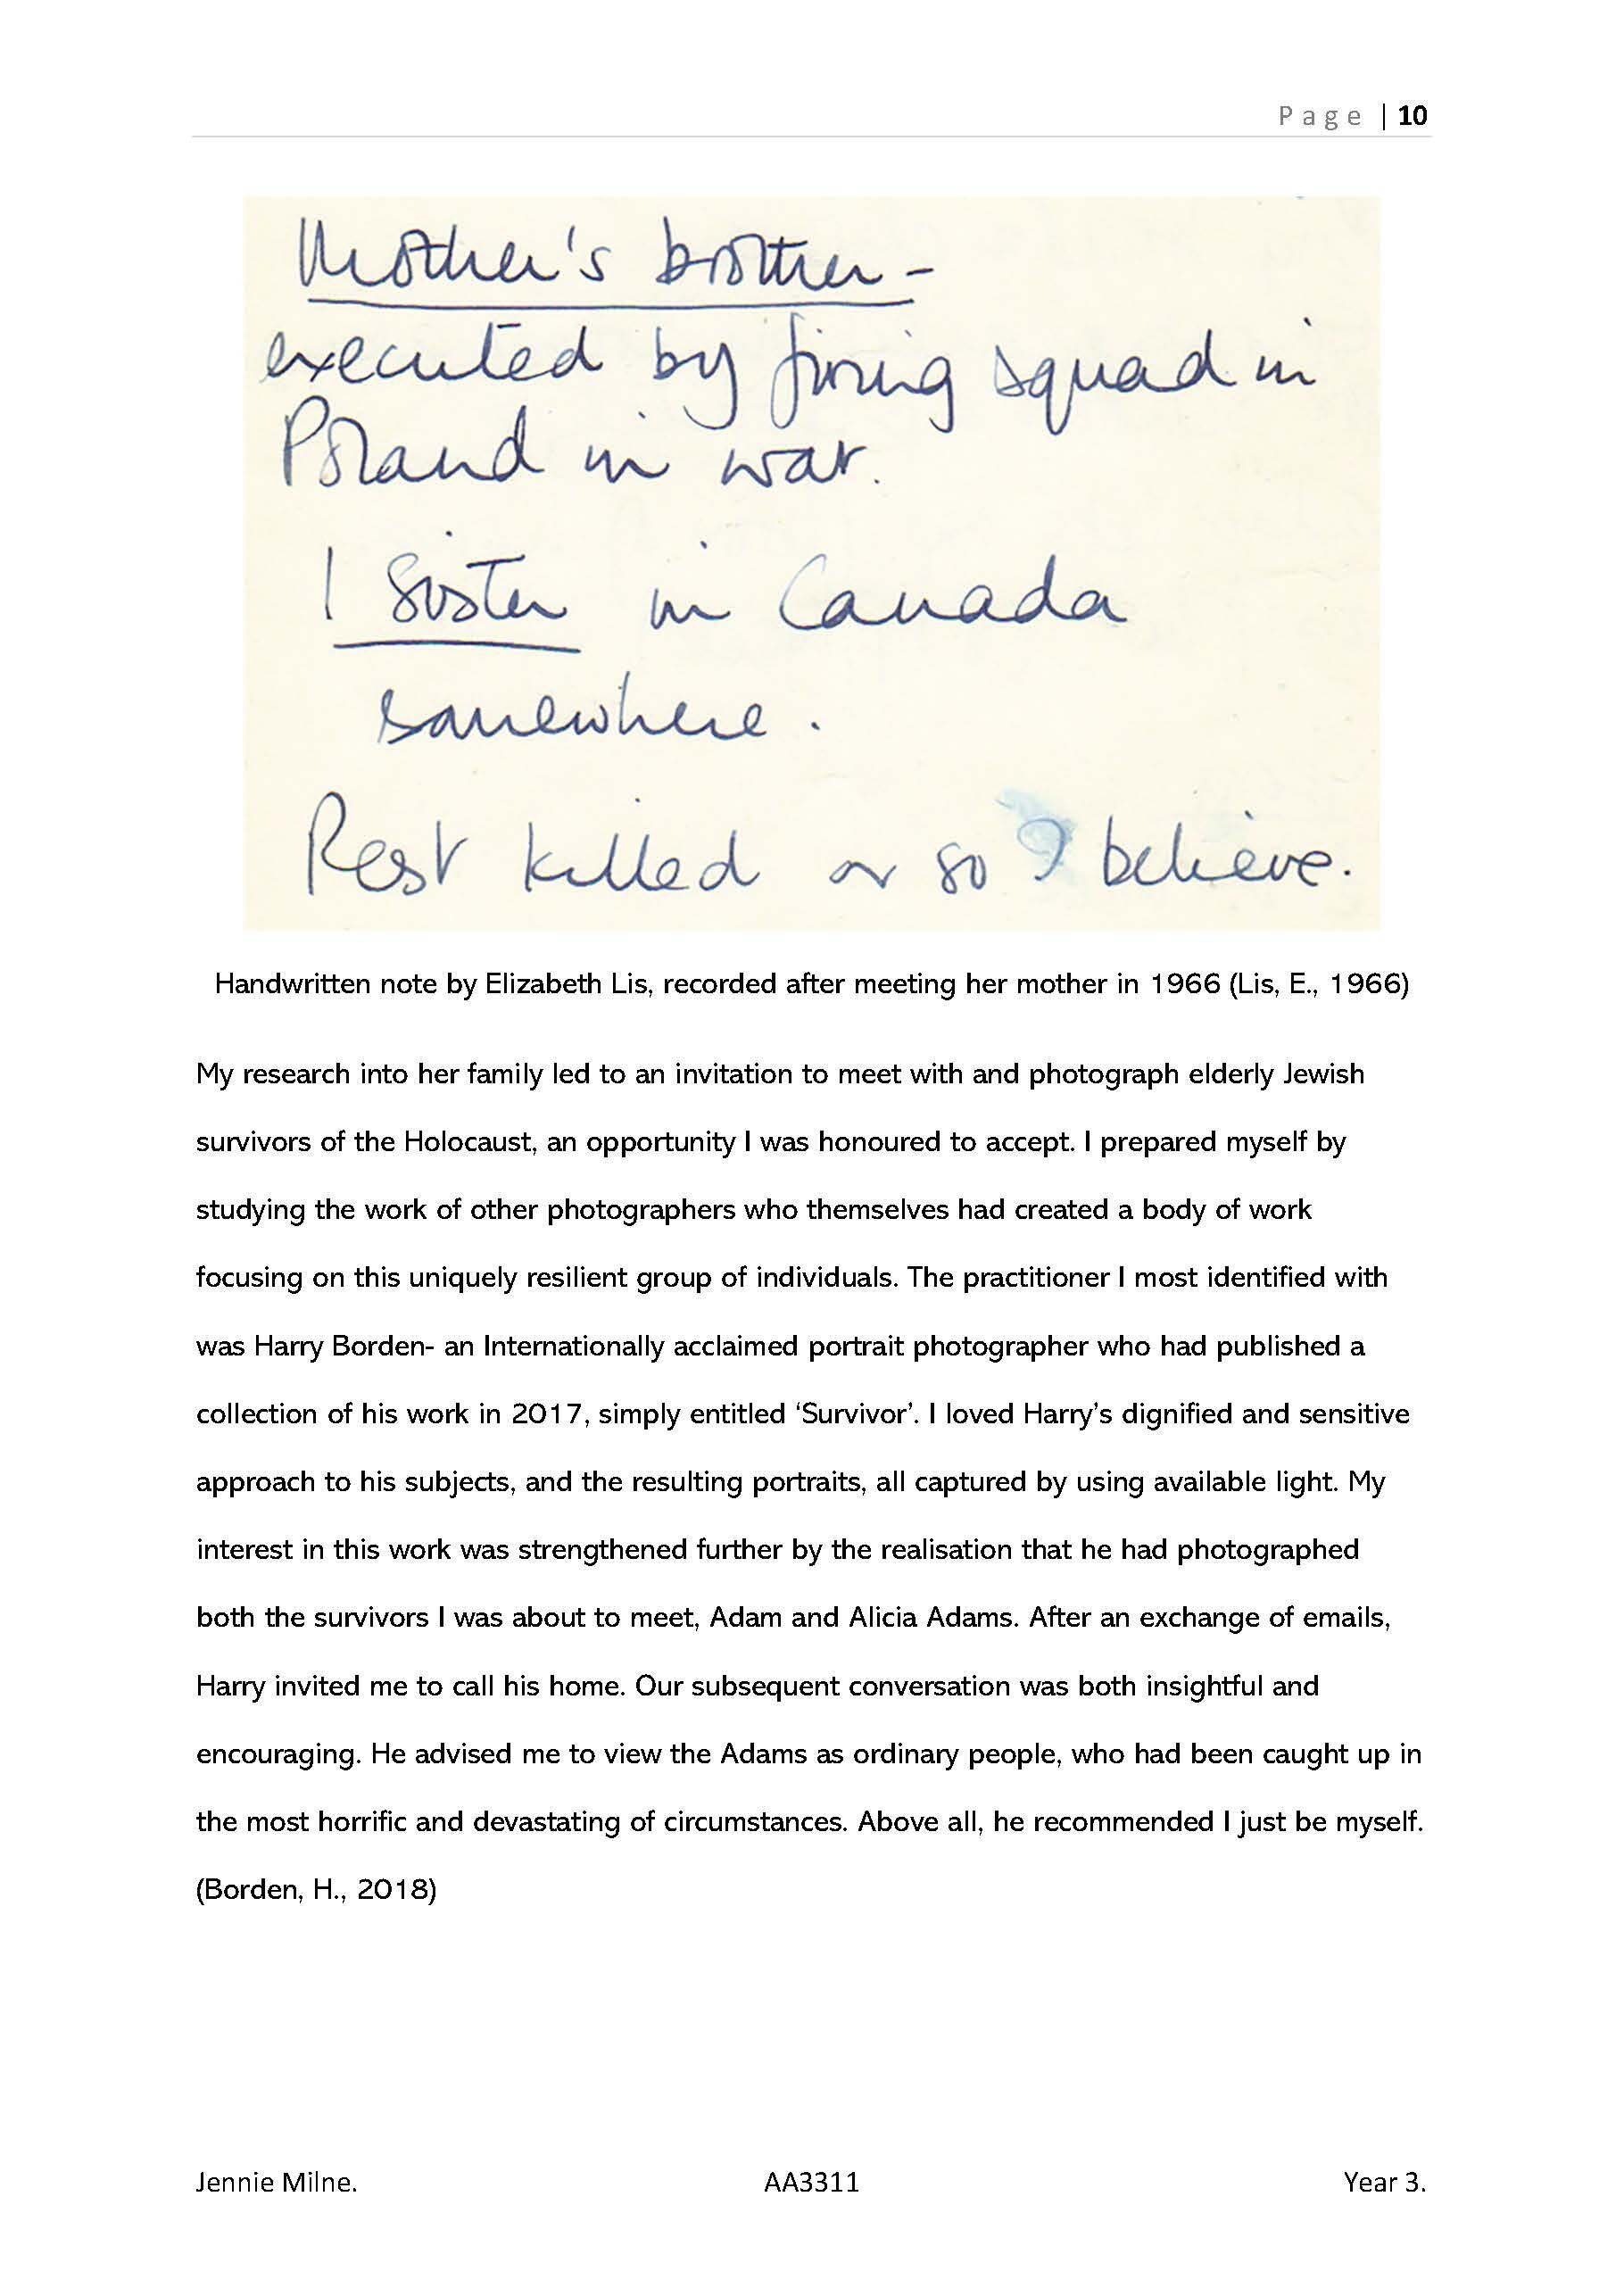 Page | 10
Mother's brother -
executed by firing squad in
Poland in war.
1 Sister in Canada
somewhere.
Rest killed or so I believe.
Handwritten note by Elizabeth Lis, recorded after meeting her mother in 1966 (Lis, E., 1966)
My research into her family led to an invitation to meet with and photograph elderly Jewish
survivors of the Holocaust, an opportunity I was honoured to accept. I prepared myself by
studying the work of other photographers who themselves had created a body of work
focusing on this uniquely resilient group of individuals. The practitioner I most identified with
was Harry Borden- an Internationally acclaimed portrait photographer who had published a
collection of his work in 2017, simply entitled ‘Survivor’. I loved Harry’s dignified and sensitive
approach to his subjects, and the resulting portraits, all captured by using available light. My
interest in this work was strengthened further by the realisation that he had photographed
both the survivors I was about to meet, Adam and Alicia Adams. After an exchange of emails,
Harry invited me to call his home. Our subsequent conversation was both insightful and
encouraging. He advised me to view the Adams as ordinary people, who had been caught up in
the most horrific and devastating of circumstances. Above all, he recommended I just be myself.
(Borden, H., 2018)
Jennie Milne. AA3311 Year 3.